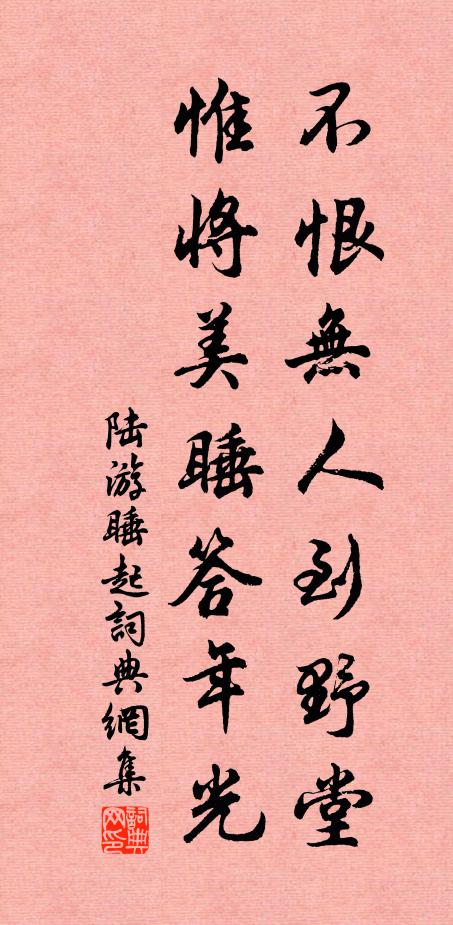 不恨無人到野堂
惟將美睡答年光
陆游睡起詞典網集
詞典网印